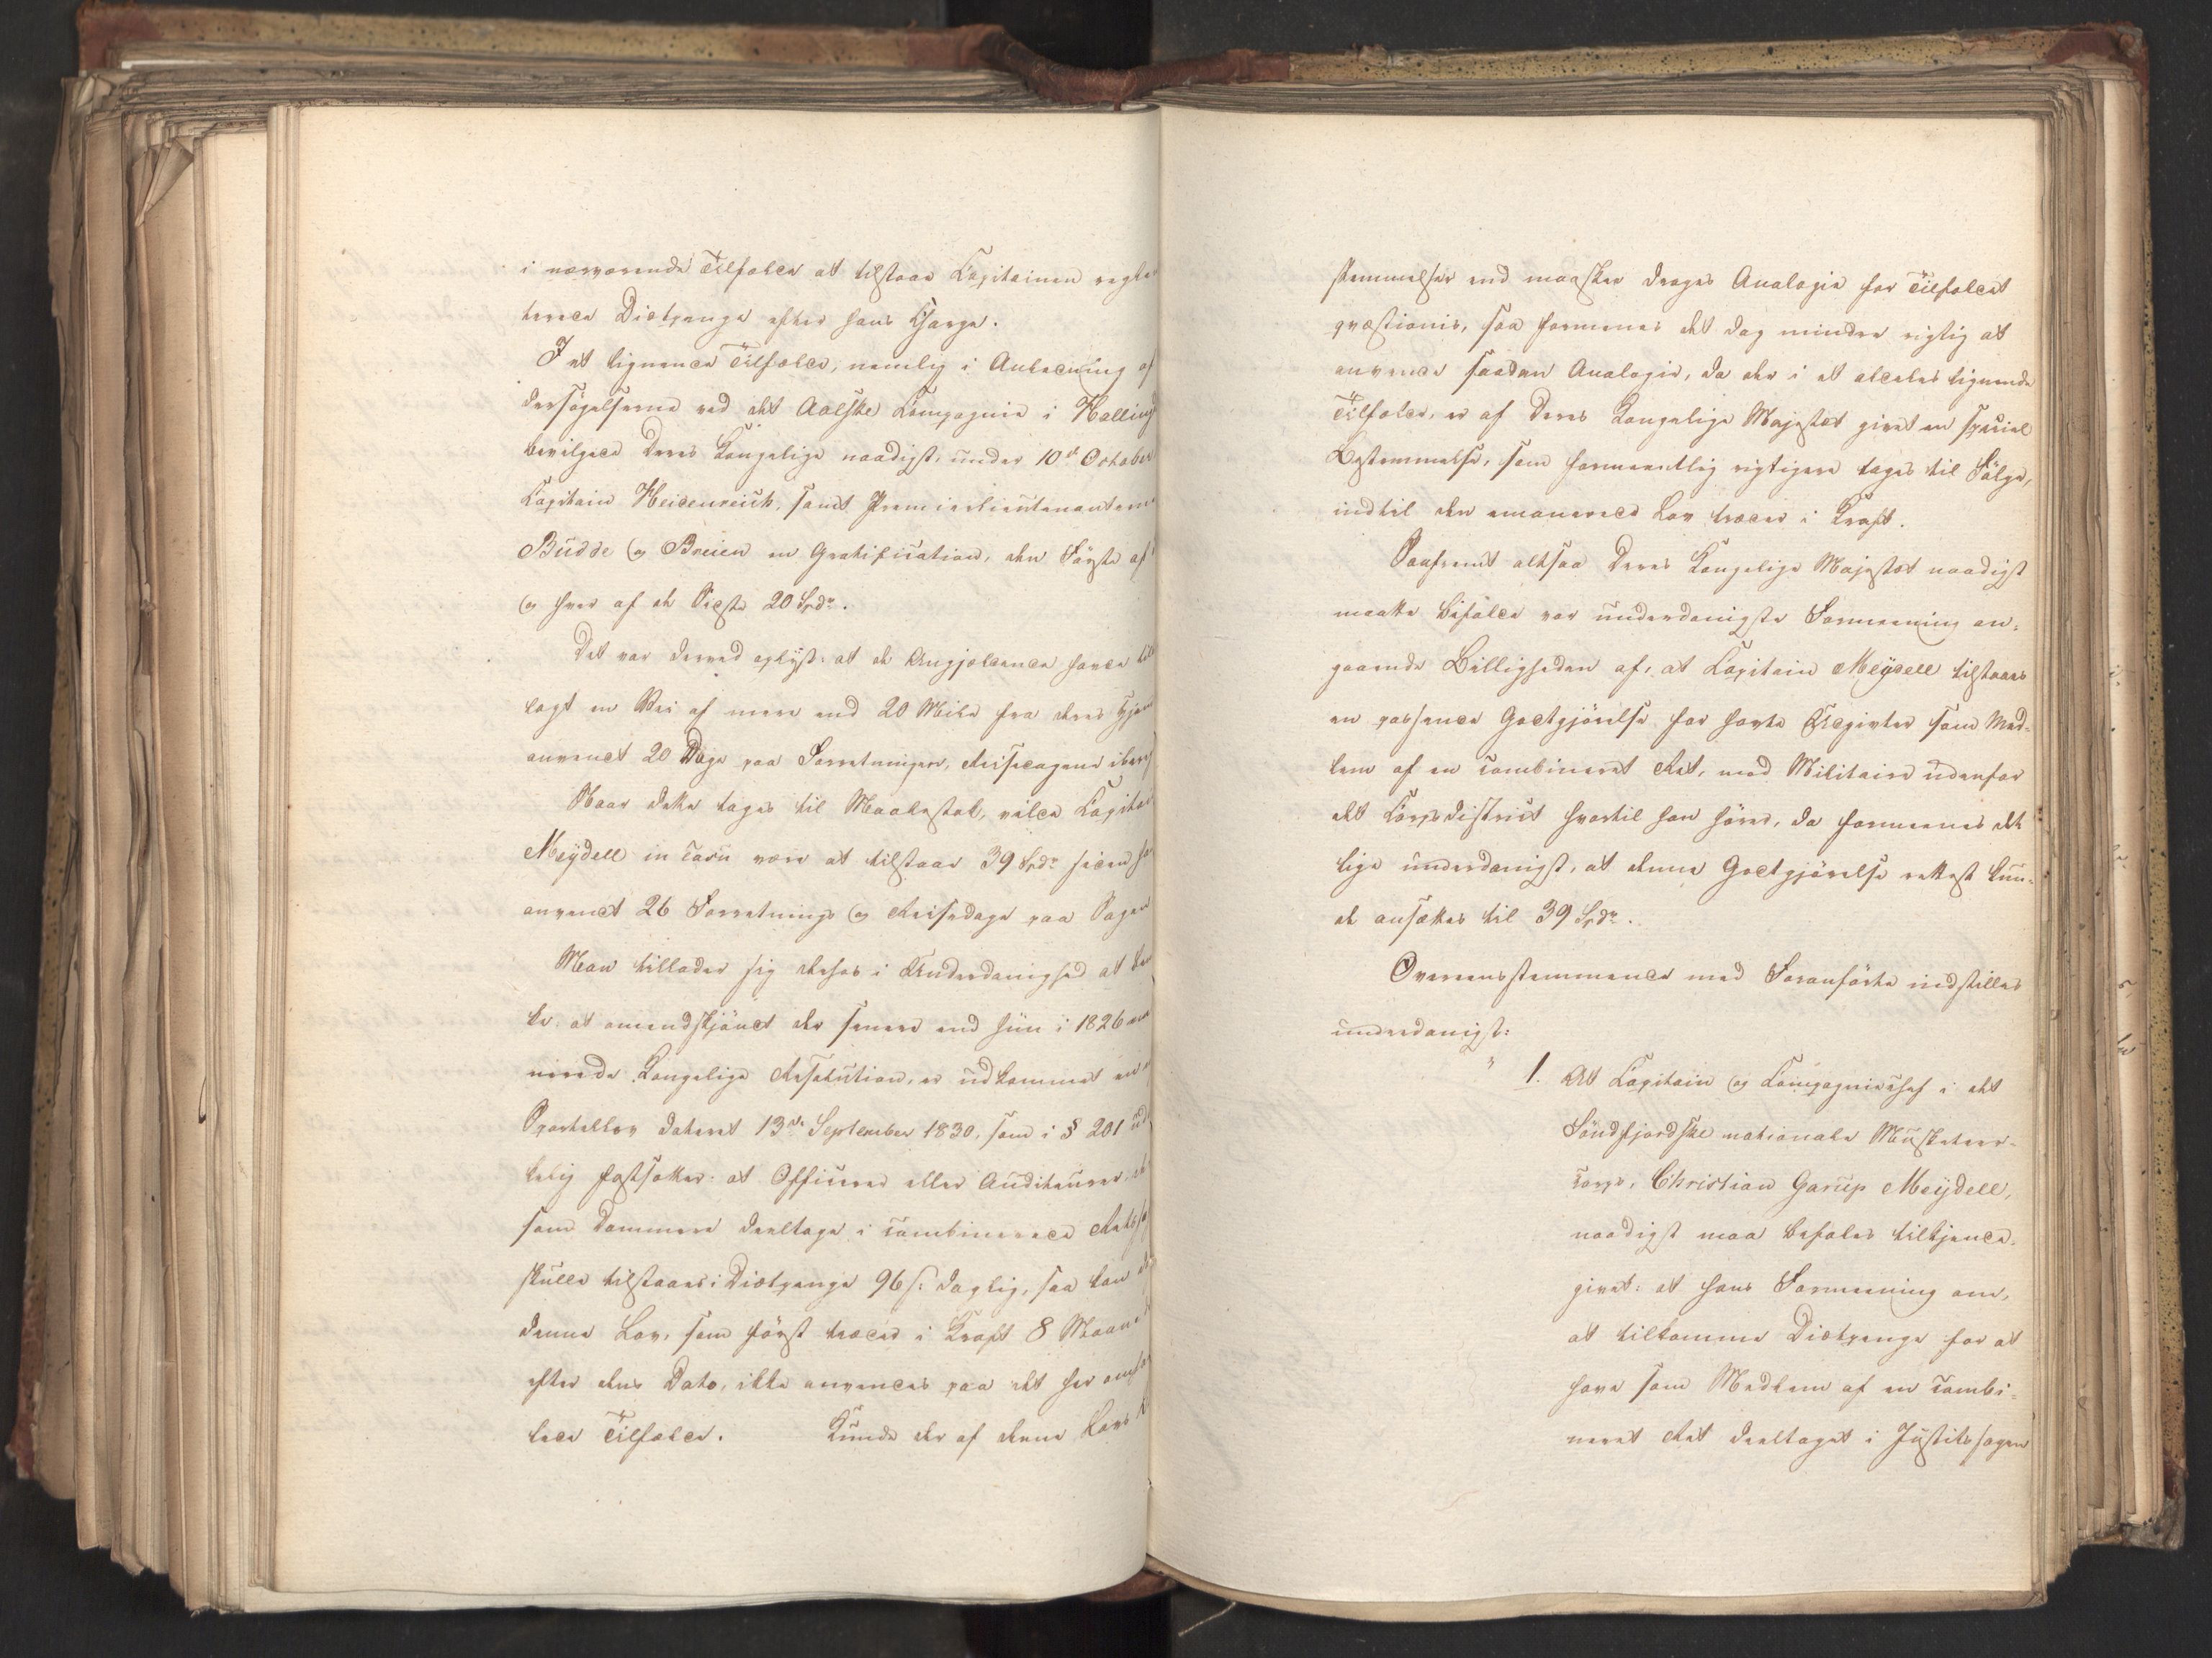 i nærværende Tilfælde at tilstaae Capitainen regle-
terede Diætpenge efter hans Charge.
I et lignende Tilfælde, nemlig i Anledning af
dersøgelserne ved det Aalske Compagnie i Halling
bevilgede Deres Kongelige naadigst, under 10de October
Capitain Heidenreich, samt Premierlieutenanterne
Budde og Breien en Gratification, den Første af
og hver af de Sidste 20 Spdr.
Det var derved oplyst: at de Angjældende havde
lagt en Vei af mere end 20 Mile fra deres Hjem
anvendt 20 Dage paa Forretningen, Reisedagene ibereg
Naar dette tages til Maalestok, vilde Capitai
Meydell in casu være at tilstaae 39 Spdr siden han
anvendt 26 Forretnings og Reisedage paa Sagen
Man tillader sig derhos i Underdanighed at
ke: at omendskjøndt der senere end hiin i 1826
nerede Kongelige Resolution, er udkommet en
Sportellov dateret 13de September 1830, som i § 201 ud
kelig fastsætter: at Officerer eller Auditeurer,
som Dommere deeltage i combinerede Rets
skulle tilstaaes i Diætpenge 96 s: daglig, saa kan
denne Lov, som først træder i Kraft 8 Maaneder
efter dens Dato, ikke anvendes paa det her om
lede Tilfælde. Kunde der af denne Lovs
stemmelser end maaskee drages Analogie for Tilfældet
qvæstionis, saa formenes det dog mindre rigtig at
anvende saadan Analogie, da der i et aldeles lignende
Tilfælde, er af Deres Kongelige Majestæt givet en special
Bestemmelse, som formeentlig rigtigere tages til Følge,
indtil den emanerede Lov træder i Kraft.
Saafremt altsaa Deres Kongelige Majestæt naadigst
maatte bifalde vor underdanigste Formening an-
gaaende Billigheden af, at Capitain Meydell tilstaaes
en passende Godtgjørelse for havte Udgivter som Med-
lem af en combineret Ret, med Militaire udenfor
det Corpsdistrict hvortil han hører, da formeenes det
lige underdanigst, at denne Godtgjørelse rettest kun-
de ansættes til 39 Spdr.
Overeensstemmende med Foranførte indstilles
underdanigst:
" 1. At Capitain og Compagniechef i det
Søndfjordske nationale Musketeer-
corps, Christian Garup Meydell,
naadigst maa befales tilkjende-
givet: at hans Formeening om,
at tilkomme Diætpenge for at
have som Medlem af en combi-
neret Ret deeltaget i Justitssagen